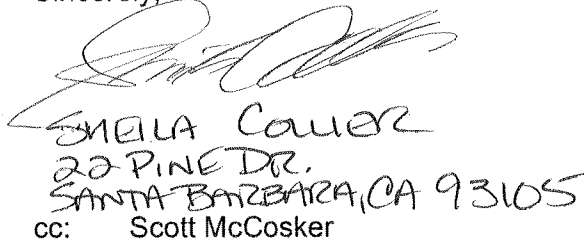 Sincerely,
SHEILA COLLIER
22 PINE DR.
SANTA BARBARA, CA 93105
cc: Scott McCosker